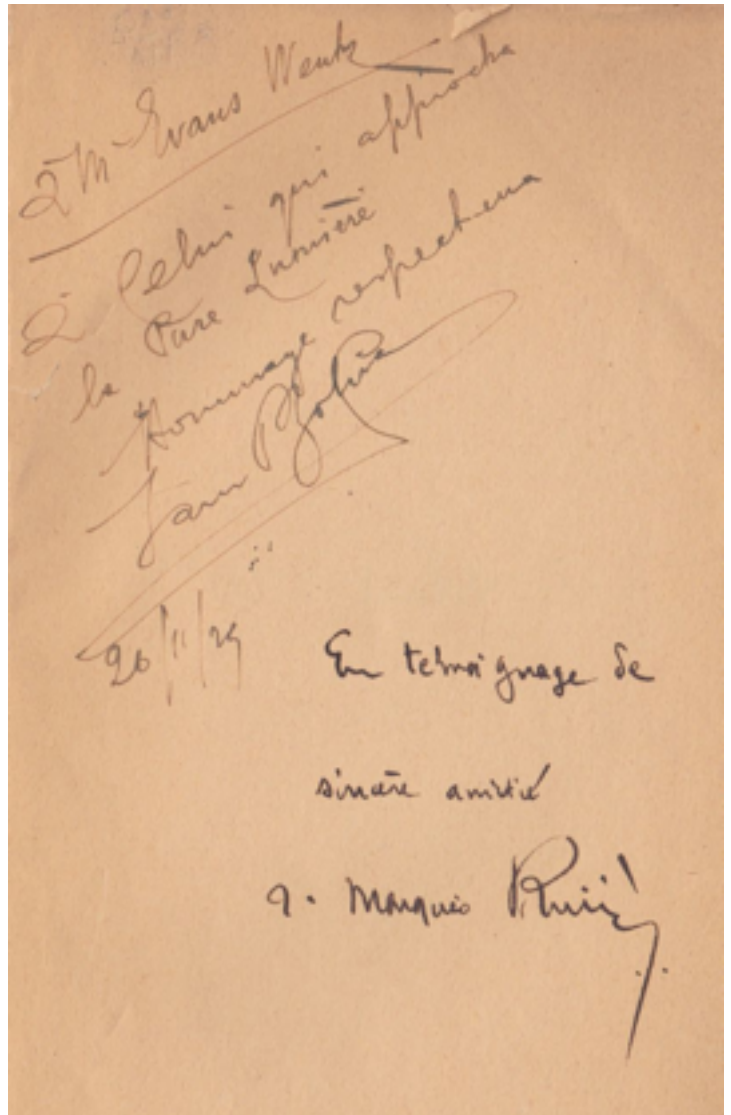 à Mr Evans Wentz
à Celui qui approcha
la Pure Lumière
Hommage respectueux
En témoignage de
sincère amitié
Marquès Rivière